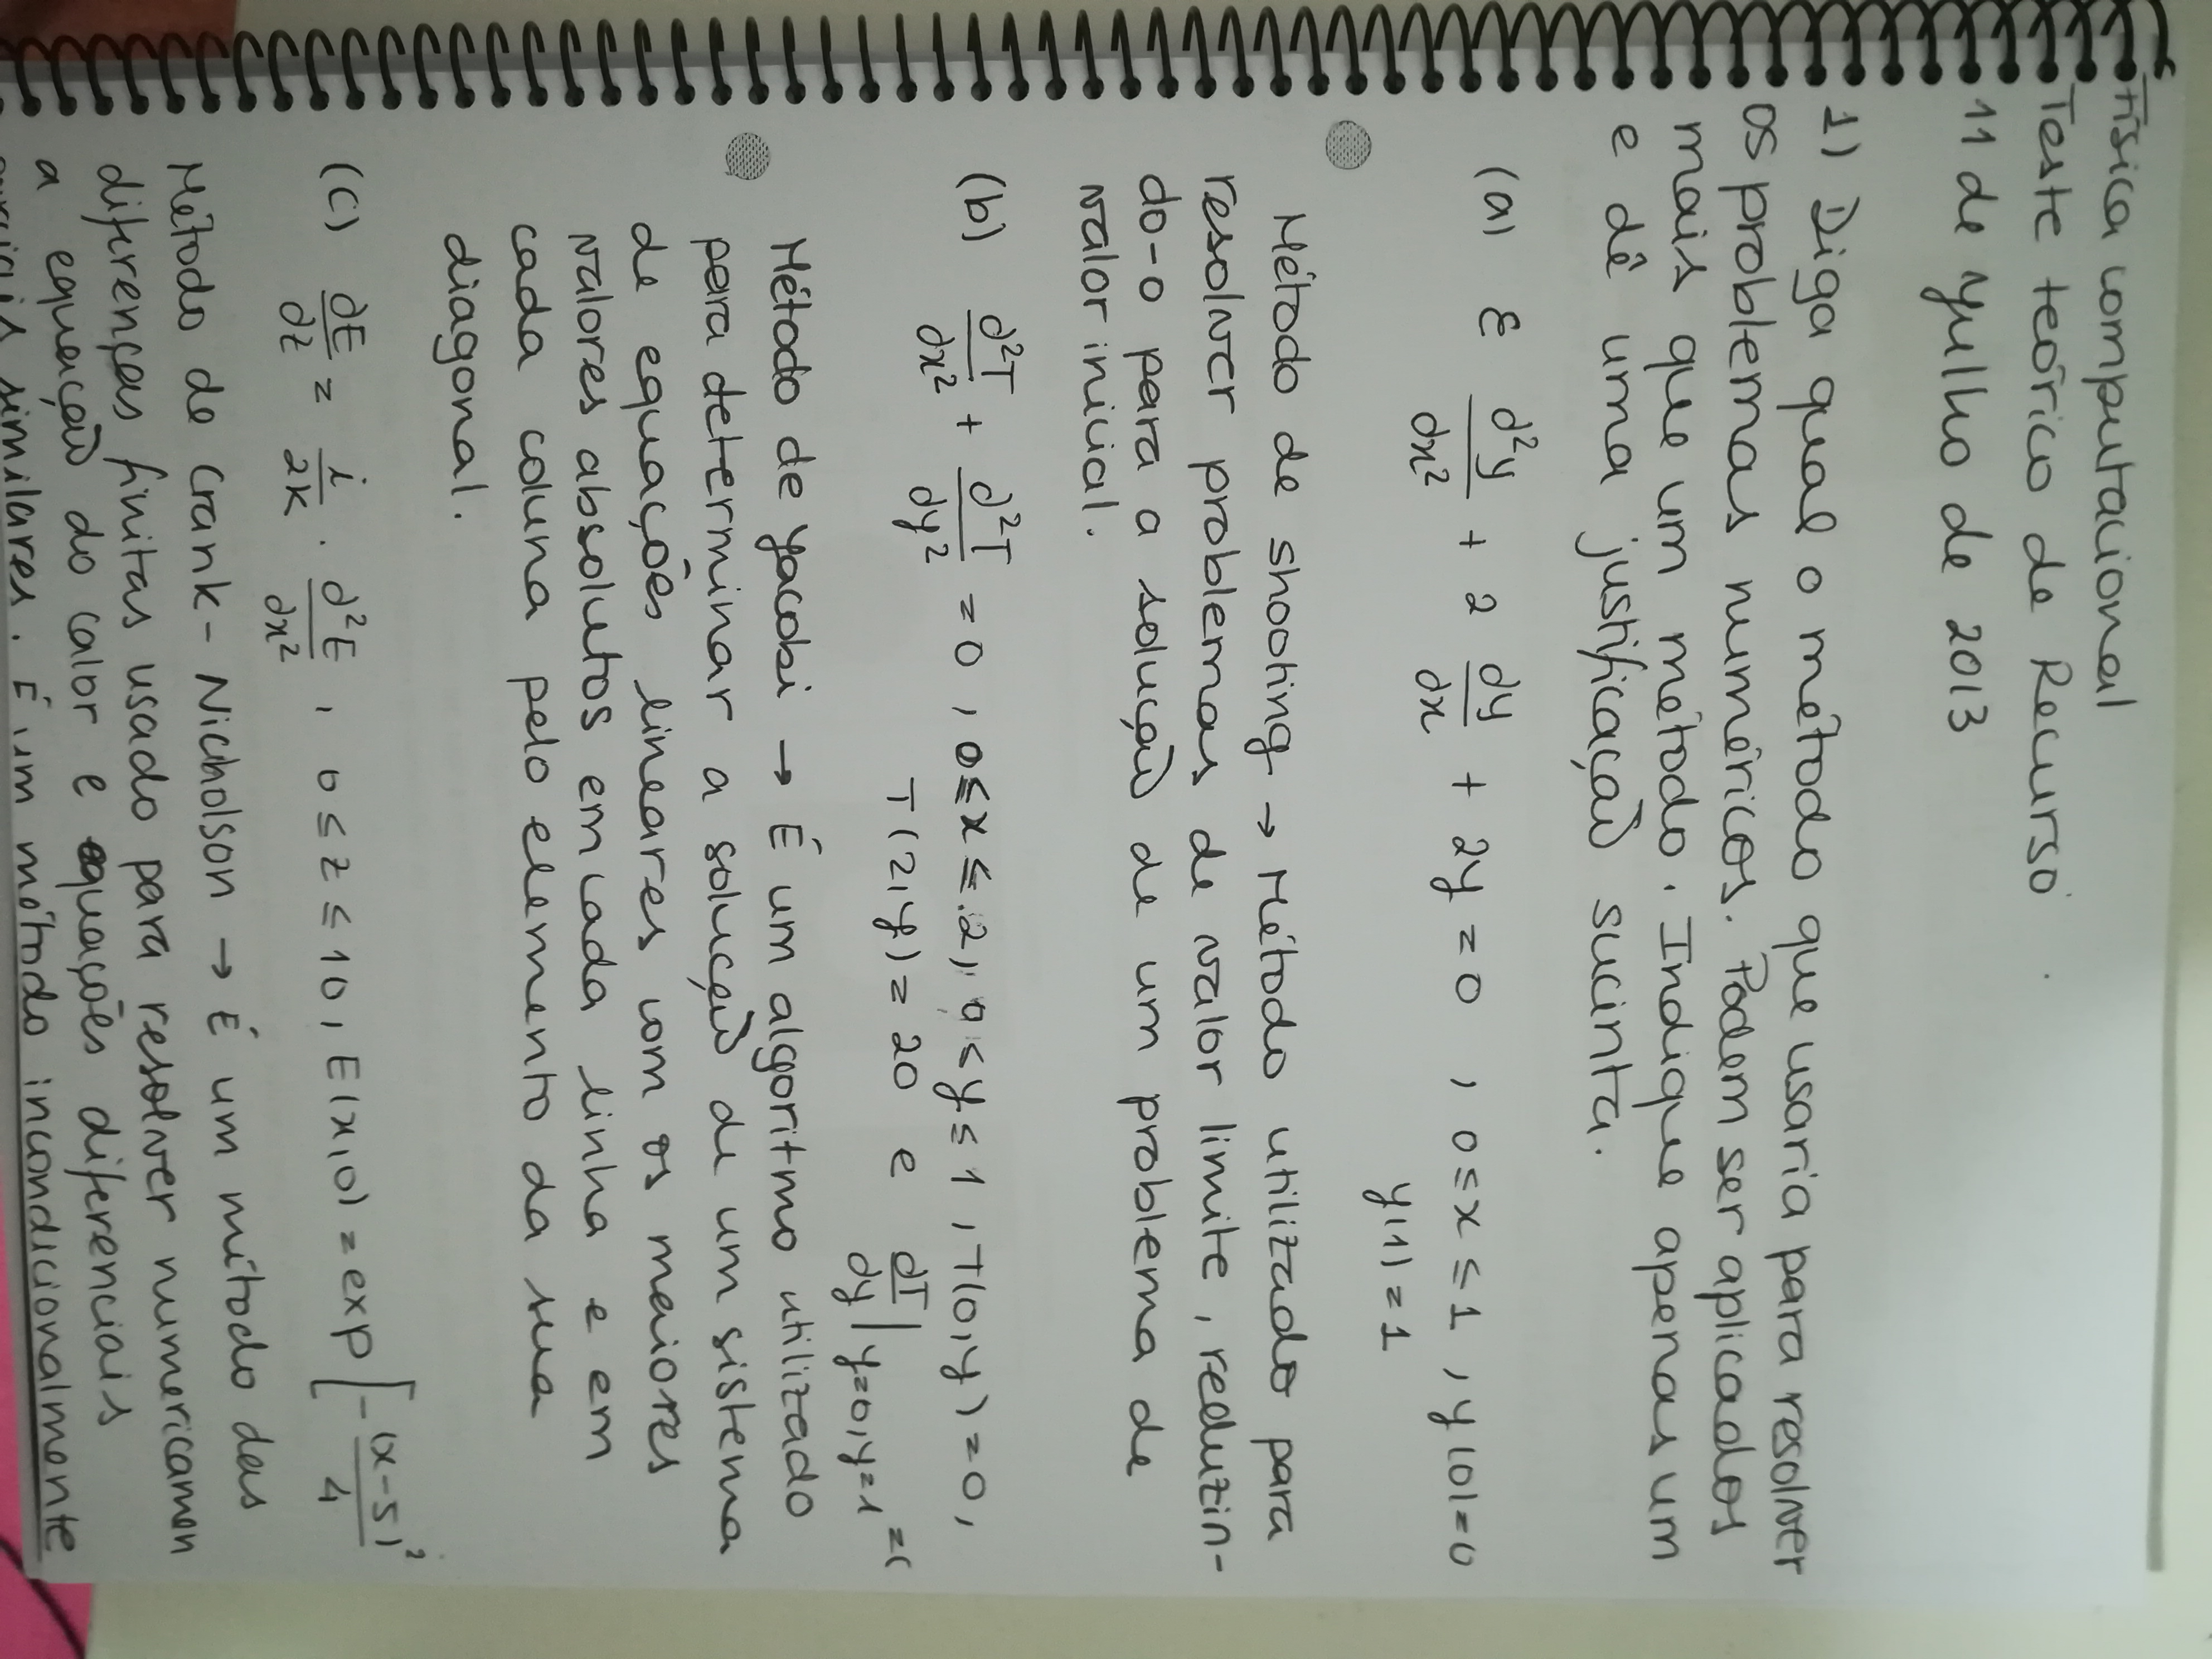 Física computacional
Teste teórico de Recurso
11 de Julho de 2013
1) Diga qual o método que usaria para resolver
os problemas numéricos. Podem ser aplicados
mais que um método. Indique apenas um
e dê uma justificação sucinta.
(a) ε d²y/dx² + 2 dy/dx + 2y = 0 , 0 ≤ x ≤ 1 , y(0)=0
y(1) = 1
Método de shooting → Método utilizado para
resolver problemas de valor limite, reduzin-
do-o para a solução de um problema de
valor inicial.
(b) ∂²T/∂x² + ∂²T/∂y² = 0 , 0 ≤ x ≤ 2, 0 ≤ y ≤ 1 , T(0,y) = 0,
T(2,y) = 20 e ∂T/∂y |y=0,y=1 =
Método de Jacobi → É um algoritmo utilizado
para determinar a solução de um sistema
de equações lineares com os maiores
valores absolutos em cada linha e em
cada coluna pelo elemento da sua
diagonal.
(C) ∂E/∂z = i/2k . ∂²E/∂x² , 0 ≤ z ≤ 10, E(x,0) = exp [-(x-5)²/4
Método de Crank-Nicholson → É um método das
diferenças finitas usado para resolver numericamen
a equação do calor e equações diferenciais
similares. É um método incondicionalmente